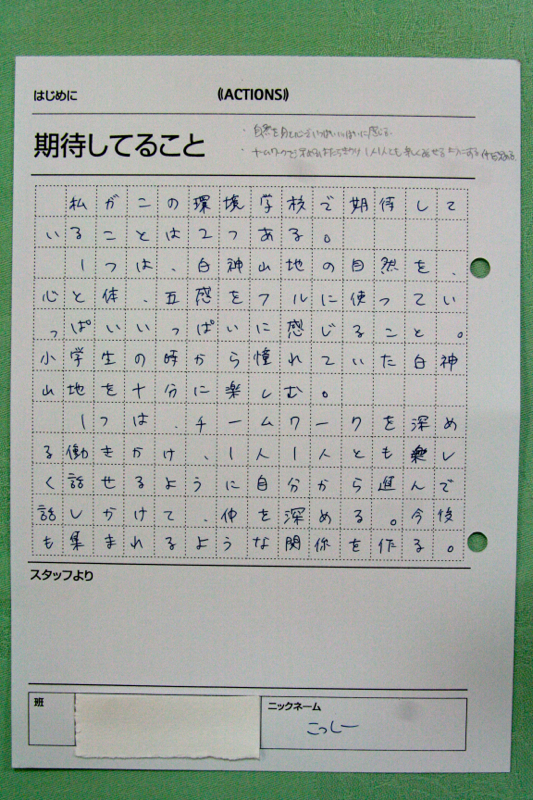 はじめに
《ACTIONS》
期待してること
・自然を身と心でいっぱいいっぱいに感じる
・チームワークを深める
私がこの環境学校で期待して
いることは2つある。
1つは、白神山地の自然を、
心と体、五感をフルに使ってい
っぱいいっぱいに感じること。
小学生の時から憧れていた白神
山地を十分に楽しむ。
1つは、チームワークを深め
る働きかけ、1人1人とも楽し
く話せるように自分から進んで
話しかけて、仲を深める。今後
も集まれるような関係を作る。
スタッフより
班
ニックネーム
こっしー